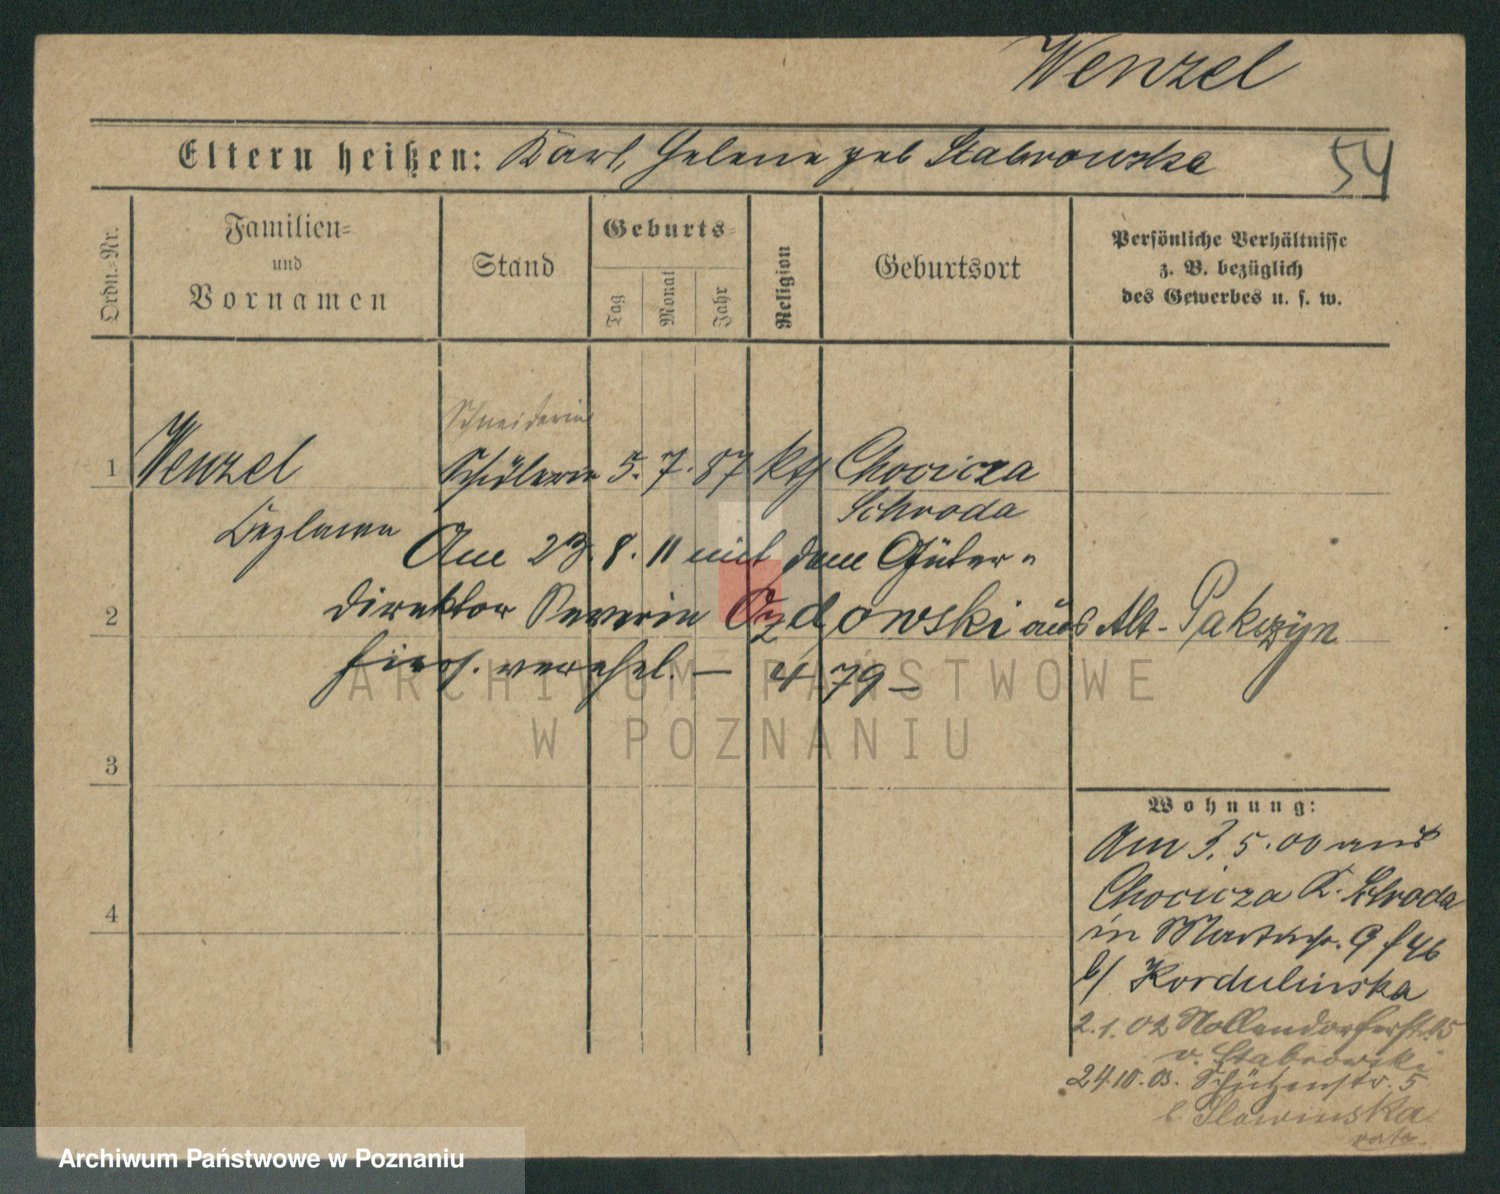 Wenzel
Eltern heißen: Karl, Helene geb Stabrowska
54
Ordn.-Nr.
Familien-
und
Vornamen
Stand
Geburts-
Tag
Monat
Jahr
Religion
Geburtsort
Persönliche Verhältnisse
z. B. bezüglich
des Gewerbes u. s. w.
Schneiderin
1 Wenzel Schülerin 5. 7. 87 kth Chocicza
Schroda
Am 23. 8. 11 mit dem Güter-
2 direktor Severin aus Alt-
hiers. verehel. — 4 79 —
ARCHIWUM PAŃSTWOWE
W POZNANIU
3
4
Wohnung:
Am 3. 5. 00 aus
Chocicza K. Schroda
in 9 f 46
b/ Kordulinska
2.1.02 Nollendorferst. 15
v. Stabrowski
24.10.03. Schützenstr. 5
b. Slowinska
Archiwum Państwowe w Poznaniu